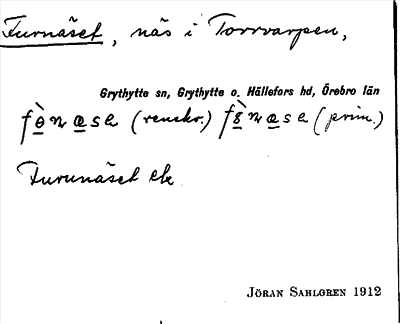 Furnäset, näs i Torrvarpen,
Grythytte sn, Grythytte o. Hällefors hd, Örebro län
(renskr.) (prim.)
Furunäset ek
JÖRAN SAHLGREN 1912